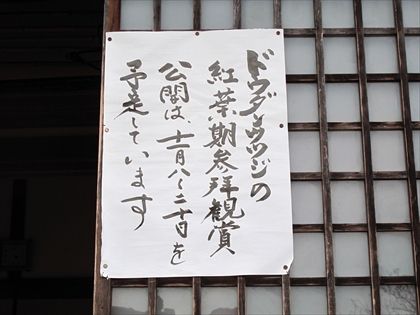 ドウダンツツジの
紅葉期参拝観賞
公開は、十一月八〜二十日を
予定しています